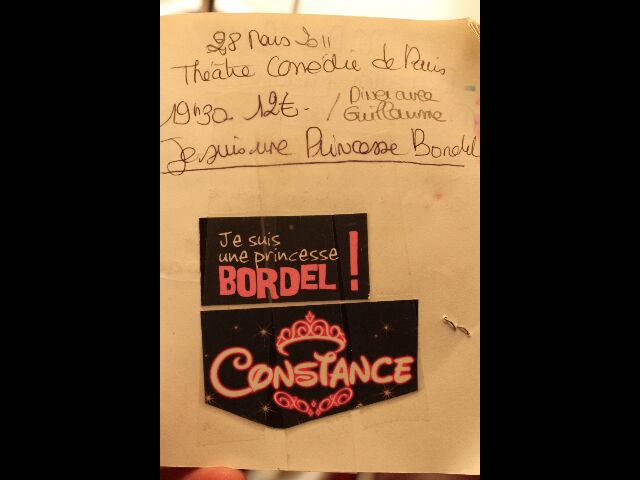 28 Mars 2011
Théâtre Comédie de Paris
19h30 12€. / Diner avec Guillaume
Je suis une Princesse Bordel
Je suis
une princesse
BORDEL !
CONSTANCE